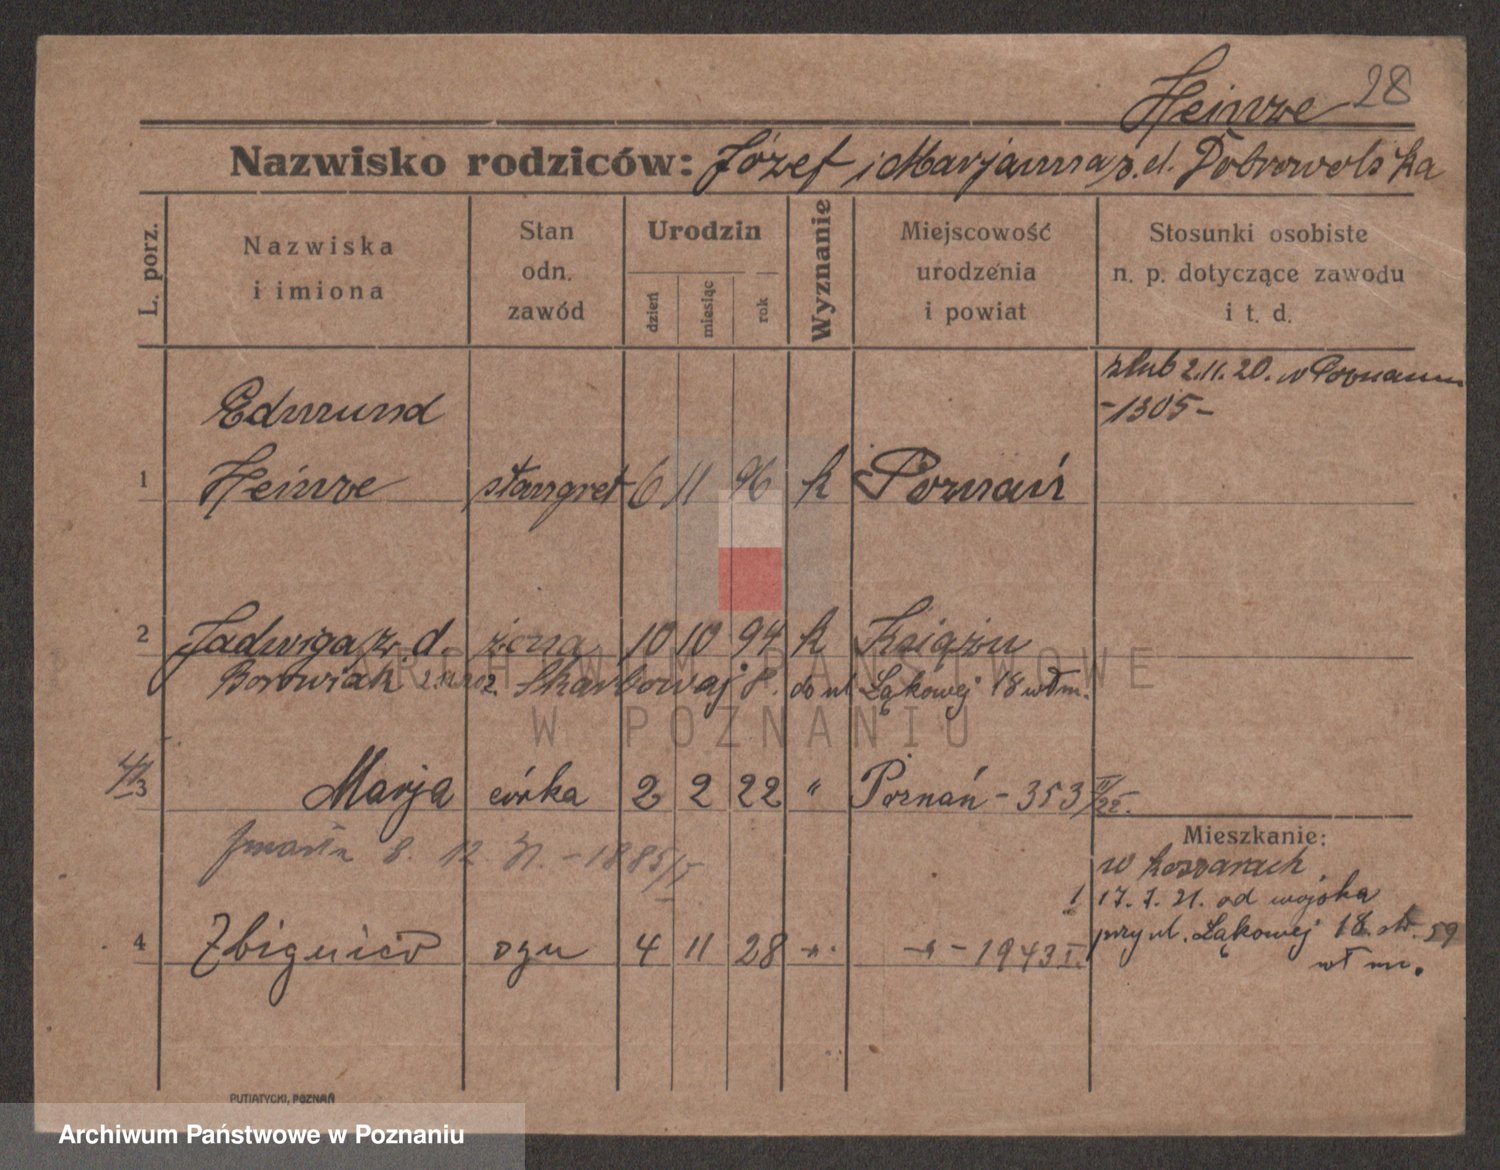 28
Heinze
Nazwisko rodziców: Józef i Marjanna z. d. Dobrowolska
L. porz.
Nazwiska i imiona
Stan odn. zawód
Urodzin
dzień
miesiąc
rok
Wyznanie
Miejscowość urodzenia i powiat
Stosunki osobiste n. p. dotyczące zawodu i t. d.
ślub 2.11.20. w Poznaniu
-1305-
Edmund
1 Heinze stangret 6 11 96 k Poznań
2 Jadwiga z. d. żona 10 10 94 k Książu
Borowiak Skarbowej 8. do ul. Łąkowej 18 wł m.
3 Marja córka 2 2 22 " Poznań - 353 II/22.
zmarła 8. 12. 31. - 1885/
Mieszkanie:
w koszarach
17. 7. 21. od wojska
przy ul. Łąkowej 18. str. 59
wł m.
4 Zbigniew syn 4 11 28 -"- -"- 1943 I.
PUTIATYCKI, POZNAŃ
ARCHIWUM PAŃSTWOWE
W POZNANIU
Archiwum Państwowe w Poznaniu